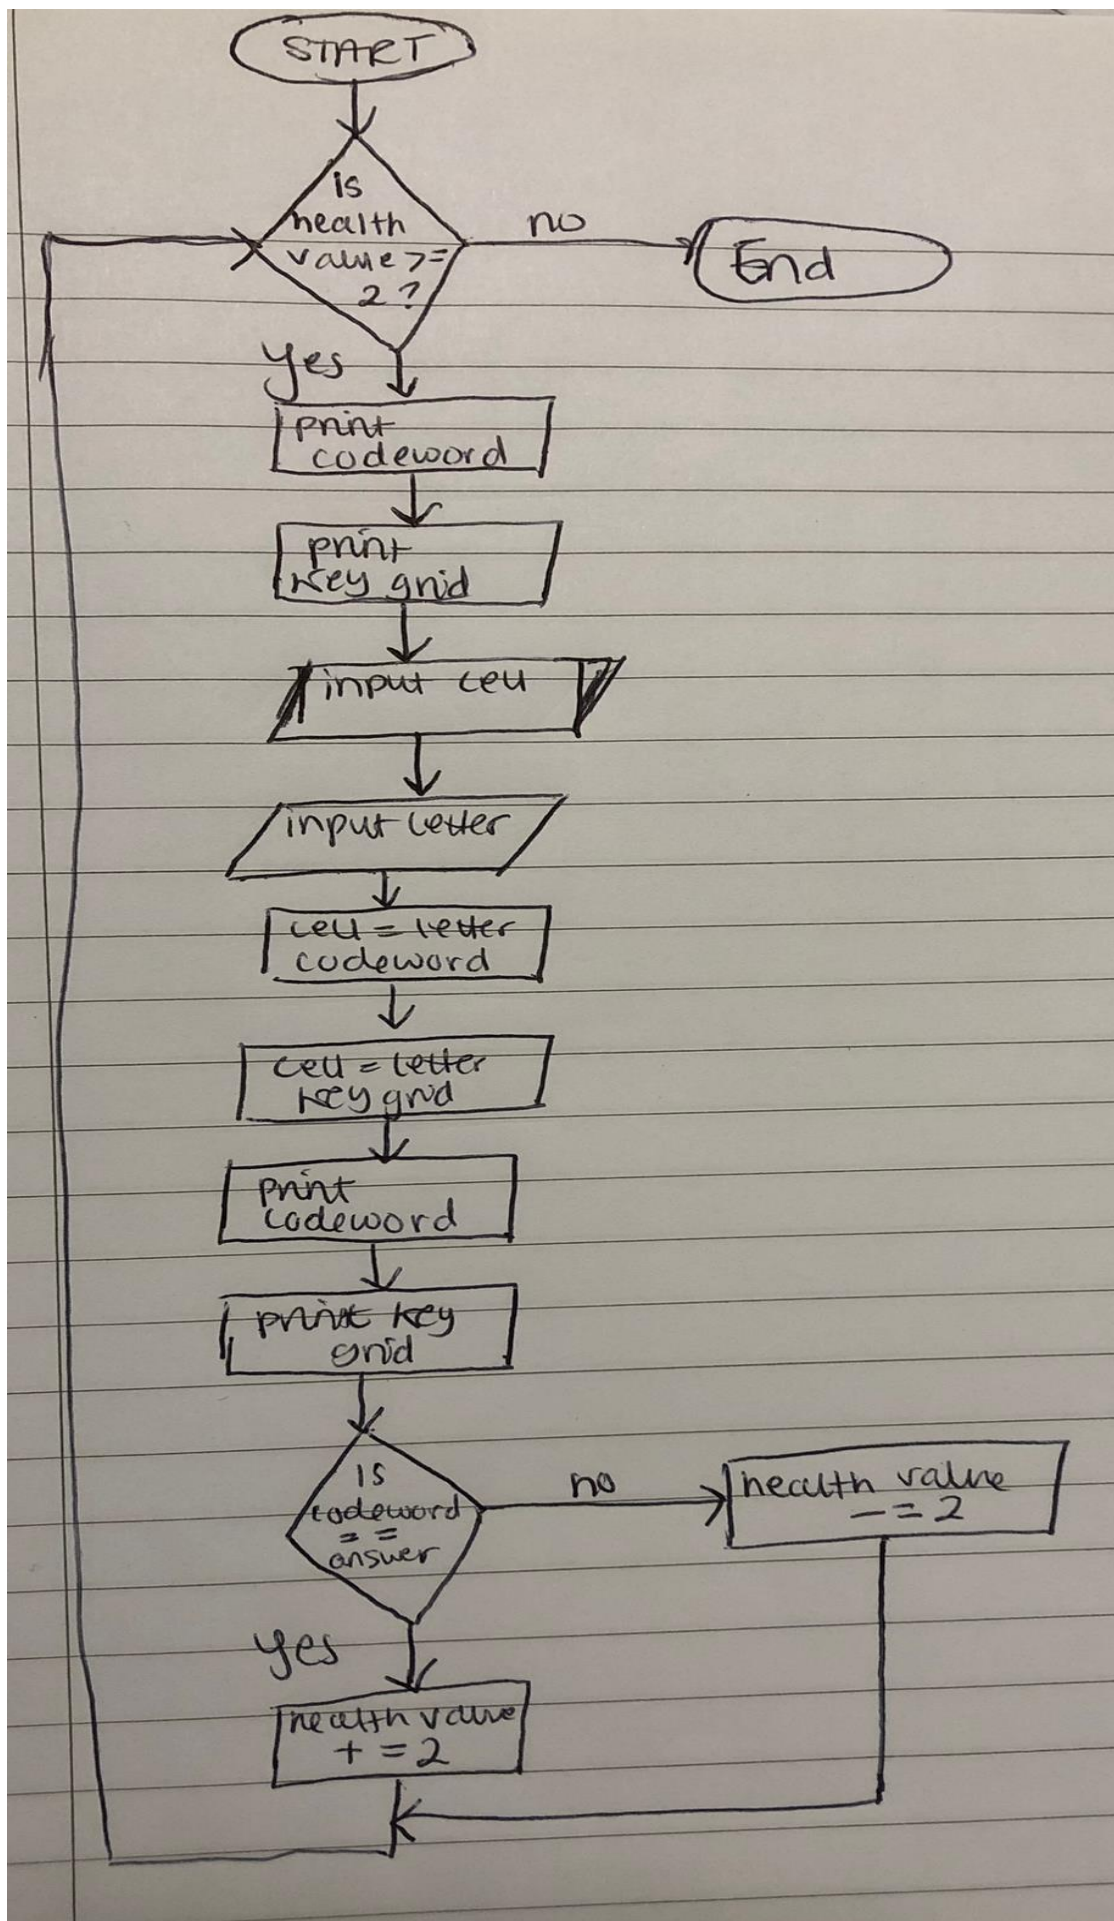 START
is
health
value >=
2 ?
no
End
Yes
print
codeword
print
key grid
input cell
input letter
cell = letter
codeword
cell = letter
key grid
print
codeword
print key
grid
is
codeword
= =
answer
no
health value
- = 2
Yes
health value
+ = 2